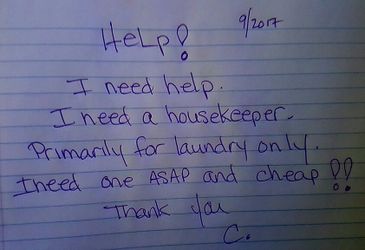 Help!
9/2017
I need help.
I need a housekeeper.
Primarily for laundry only.
I need one ASAP and cheap!!
Thank you
C.